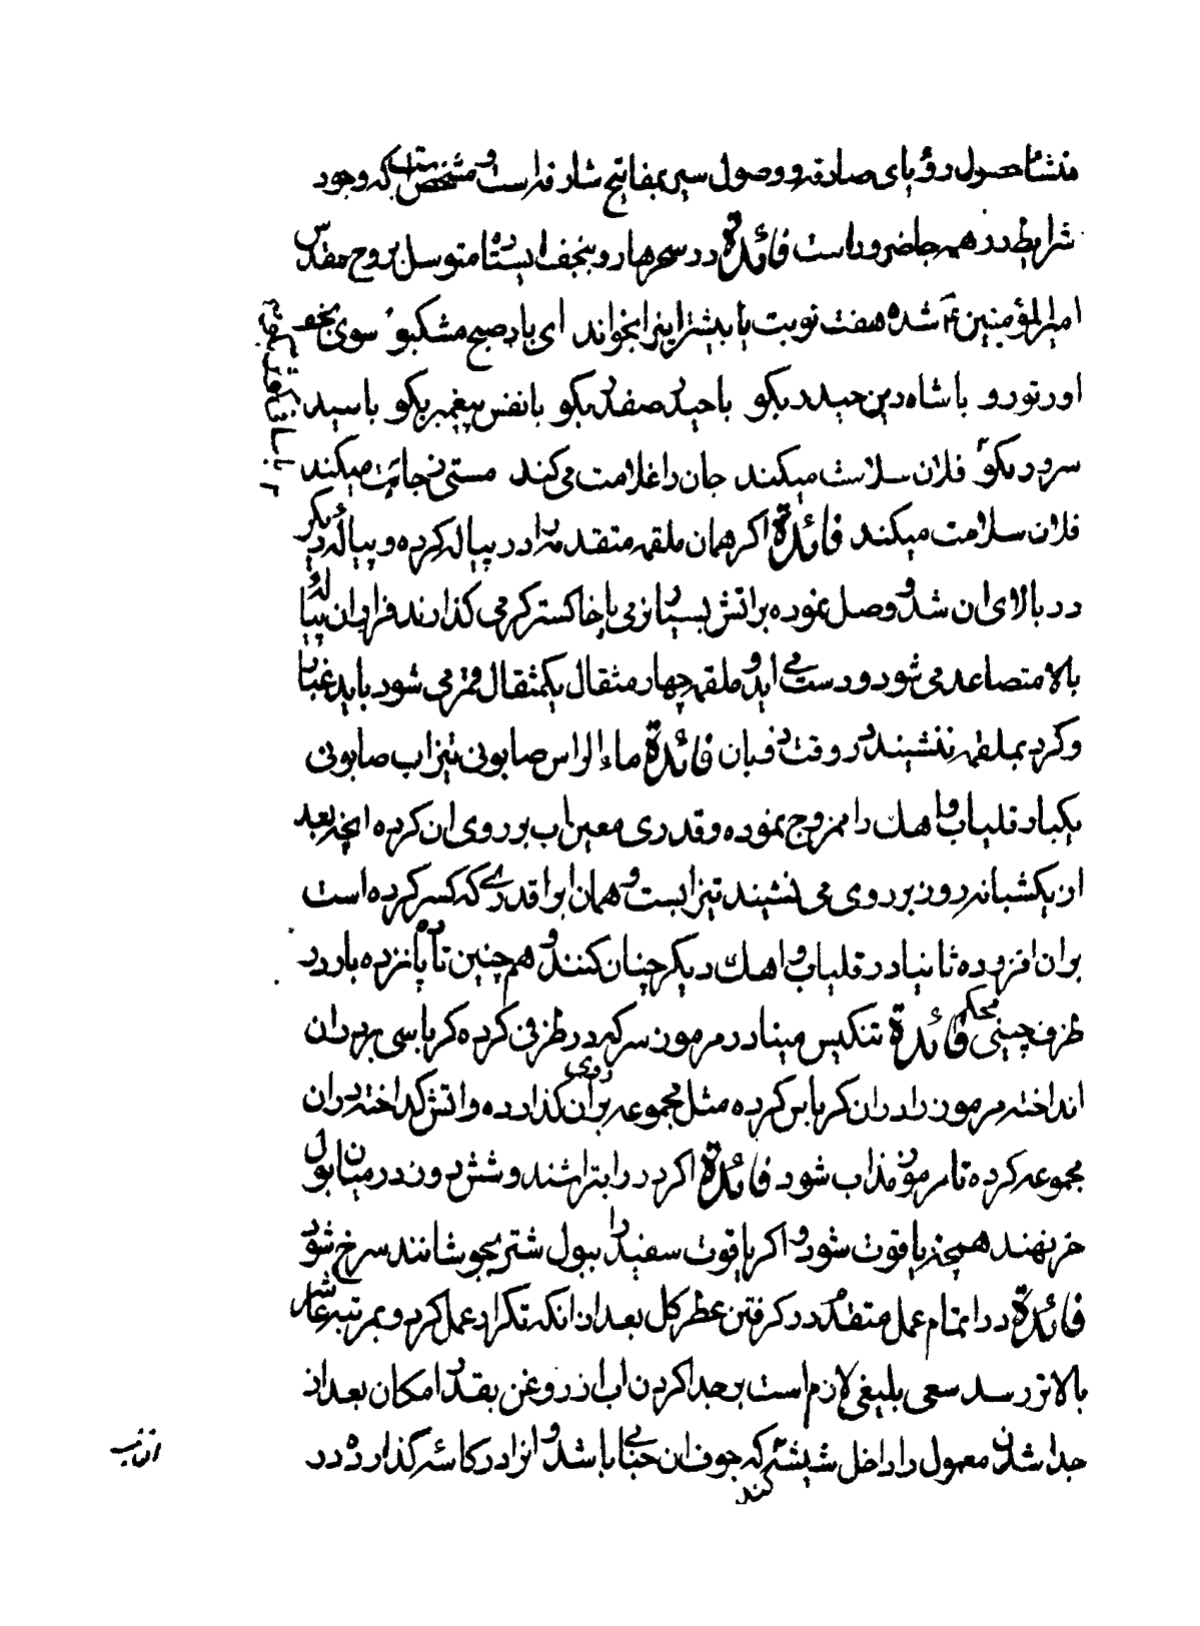 منشأ حصول رؤیای صادقه و وصول سیر بمفاتیح شارقه است و مشخص است که وجود
شرایط در همه جا ضرور است فائدة در سحرها رو بنجف ایستاده متوسل بروح مقدس
امیرالمؤمنین ع شده هفت نوبت یا بیشتر اینرا بخواند ای باد صبح مشکبو سوی نجف
اور تو رو با شاه دین حیدر بکو با حیدر صفدر بکو با نفس پیغمبر بکو با سید
سرور بکو فلان سلامت میکند جان را غلامت می کند مستی ز جامت میکند
فلان سلامت میکند فائدة اکر همان ملقمه متقدمه را در پیاله کرده و پیاله دیکر
در بالای ان شد و وصل نموده براتش بسیار نرمی یا خاکستر کرم می کذارند فرار ان پیاله
بالا متصاعد می شود و درست می اید و ملقمه چهار مثقال یکمثقال قمر می شود باید غبار
و کرد بملقمه ننشیند در وقت ذوبان فائدة ماء الراس صابونی تیزاب صابونی
یکبار قلیاب و اهک را ممزوج نموده و قدری معین اب بر روی ان کرده انچه بعد
از یکشبانه روز بر روی می نشیند تیزابست و همان ابرا قدری که کسر کرده است
بران افزوده ثانیا در قلیاب و اهک دیکر چنان کنند و هم چنین تا پانزده بار در
ظرف چینی محکم فائدة تنکیس مینا در مرموز سرکه در ظرفی کرده کرباسی بر در ان
انداخته مرموز را در ان کرباس کرده مثل مجموعه بر روی ان کذارده و اتش کداخته در ان
مجموعه کرده تا مرموز مذاب شود فائدة اکر در را بتراشند و شش روز در میان بول
خر نهند همچو یاقوت شود و اکر یاقوت سفید را ببول شتر بجوشانند سرخ شود
فائدة در اتمام عمل متقدم در کرفتن عطر کل بعد از انکه تکرار عمل کرد و بمرتبه عاشر
بالاتر رسد سعی بلیغی لازم است بر جدا کردن اب از روغن بقدر امکان بعد از
جدا شدن معمول را داخل شیشه کند که جوف ان حبابی باشد و انرا در کاسه کذارده در
افتاب